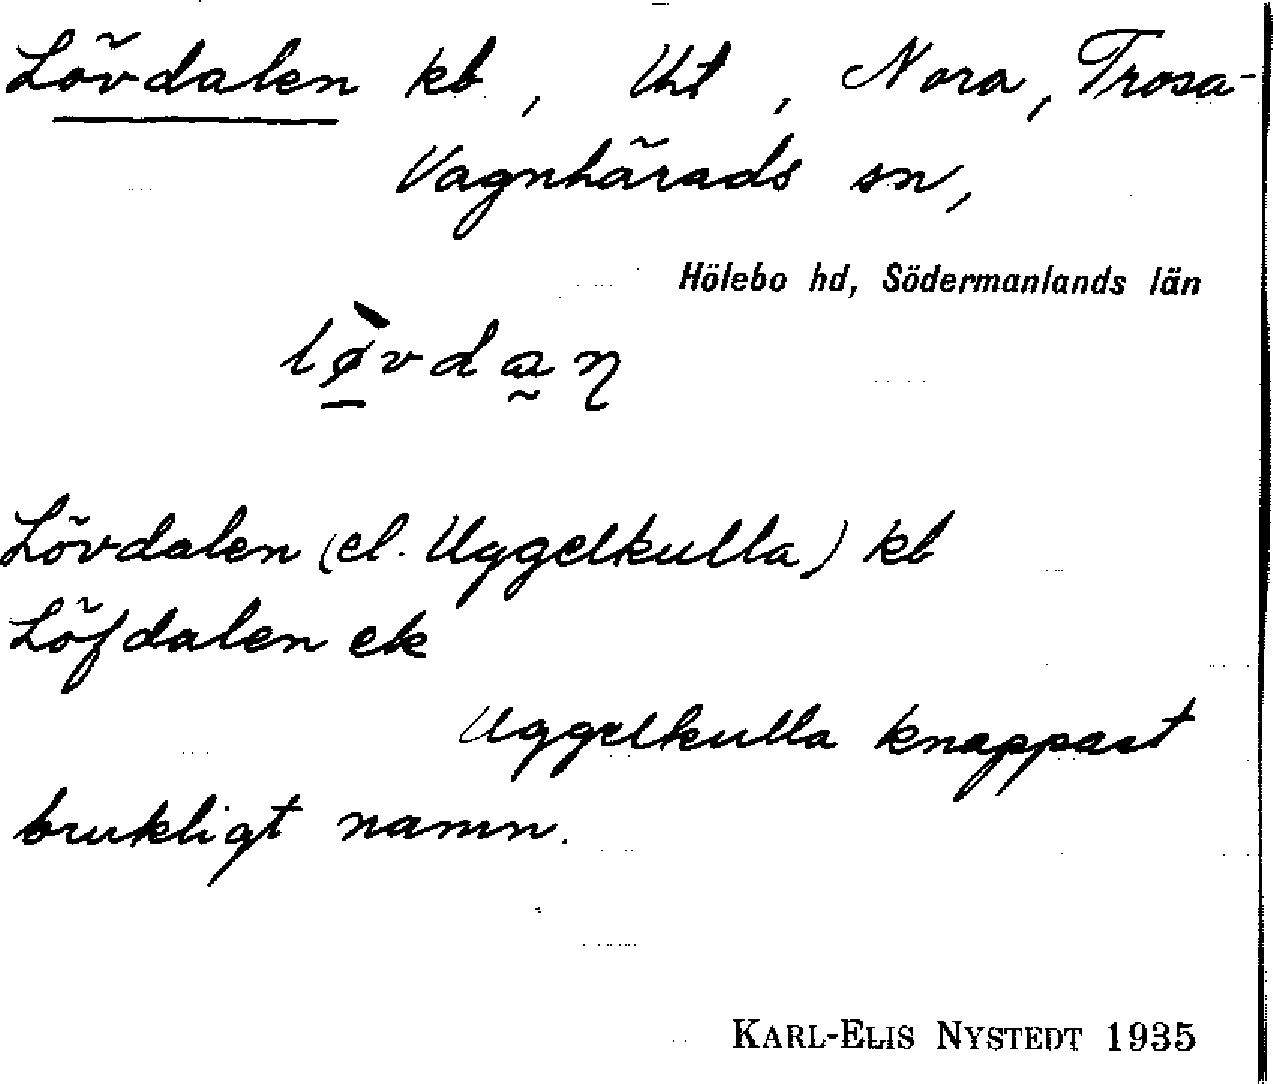 Lövdalen kb, Uht, Nora, Trosa-
Vagnhärads sn,
Hölebo hd, Södermanlands län
Lövdalen (el. Uggelkulla) kb
Löfdalen ek
Uggelkulla knappast
brukligt namn.
KARL-ELIS NYSTEDT 1935